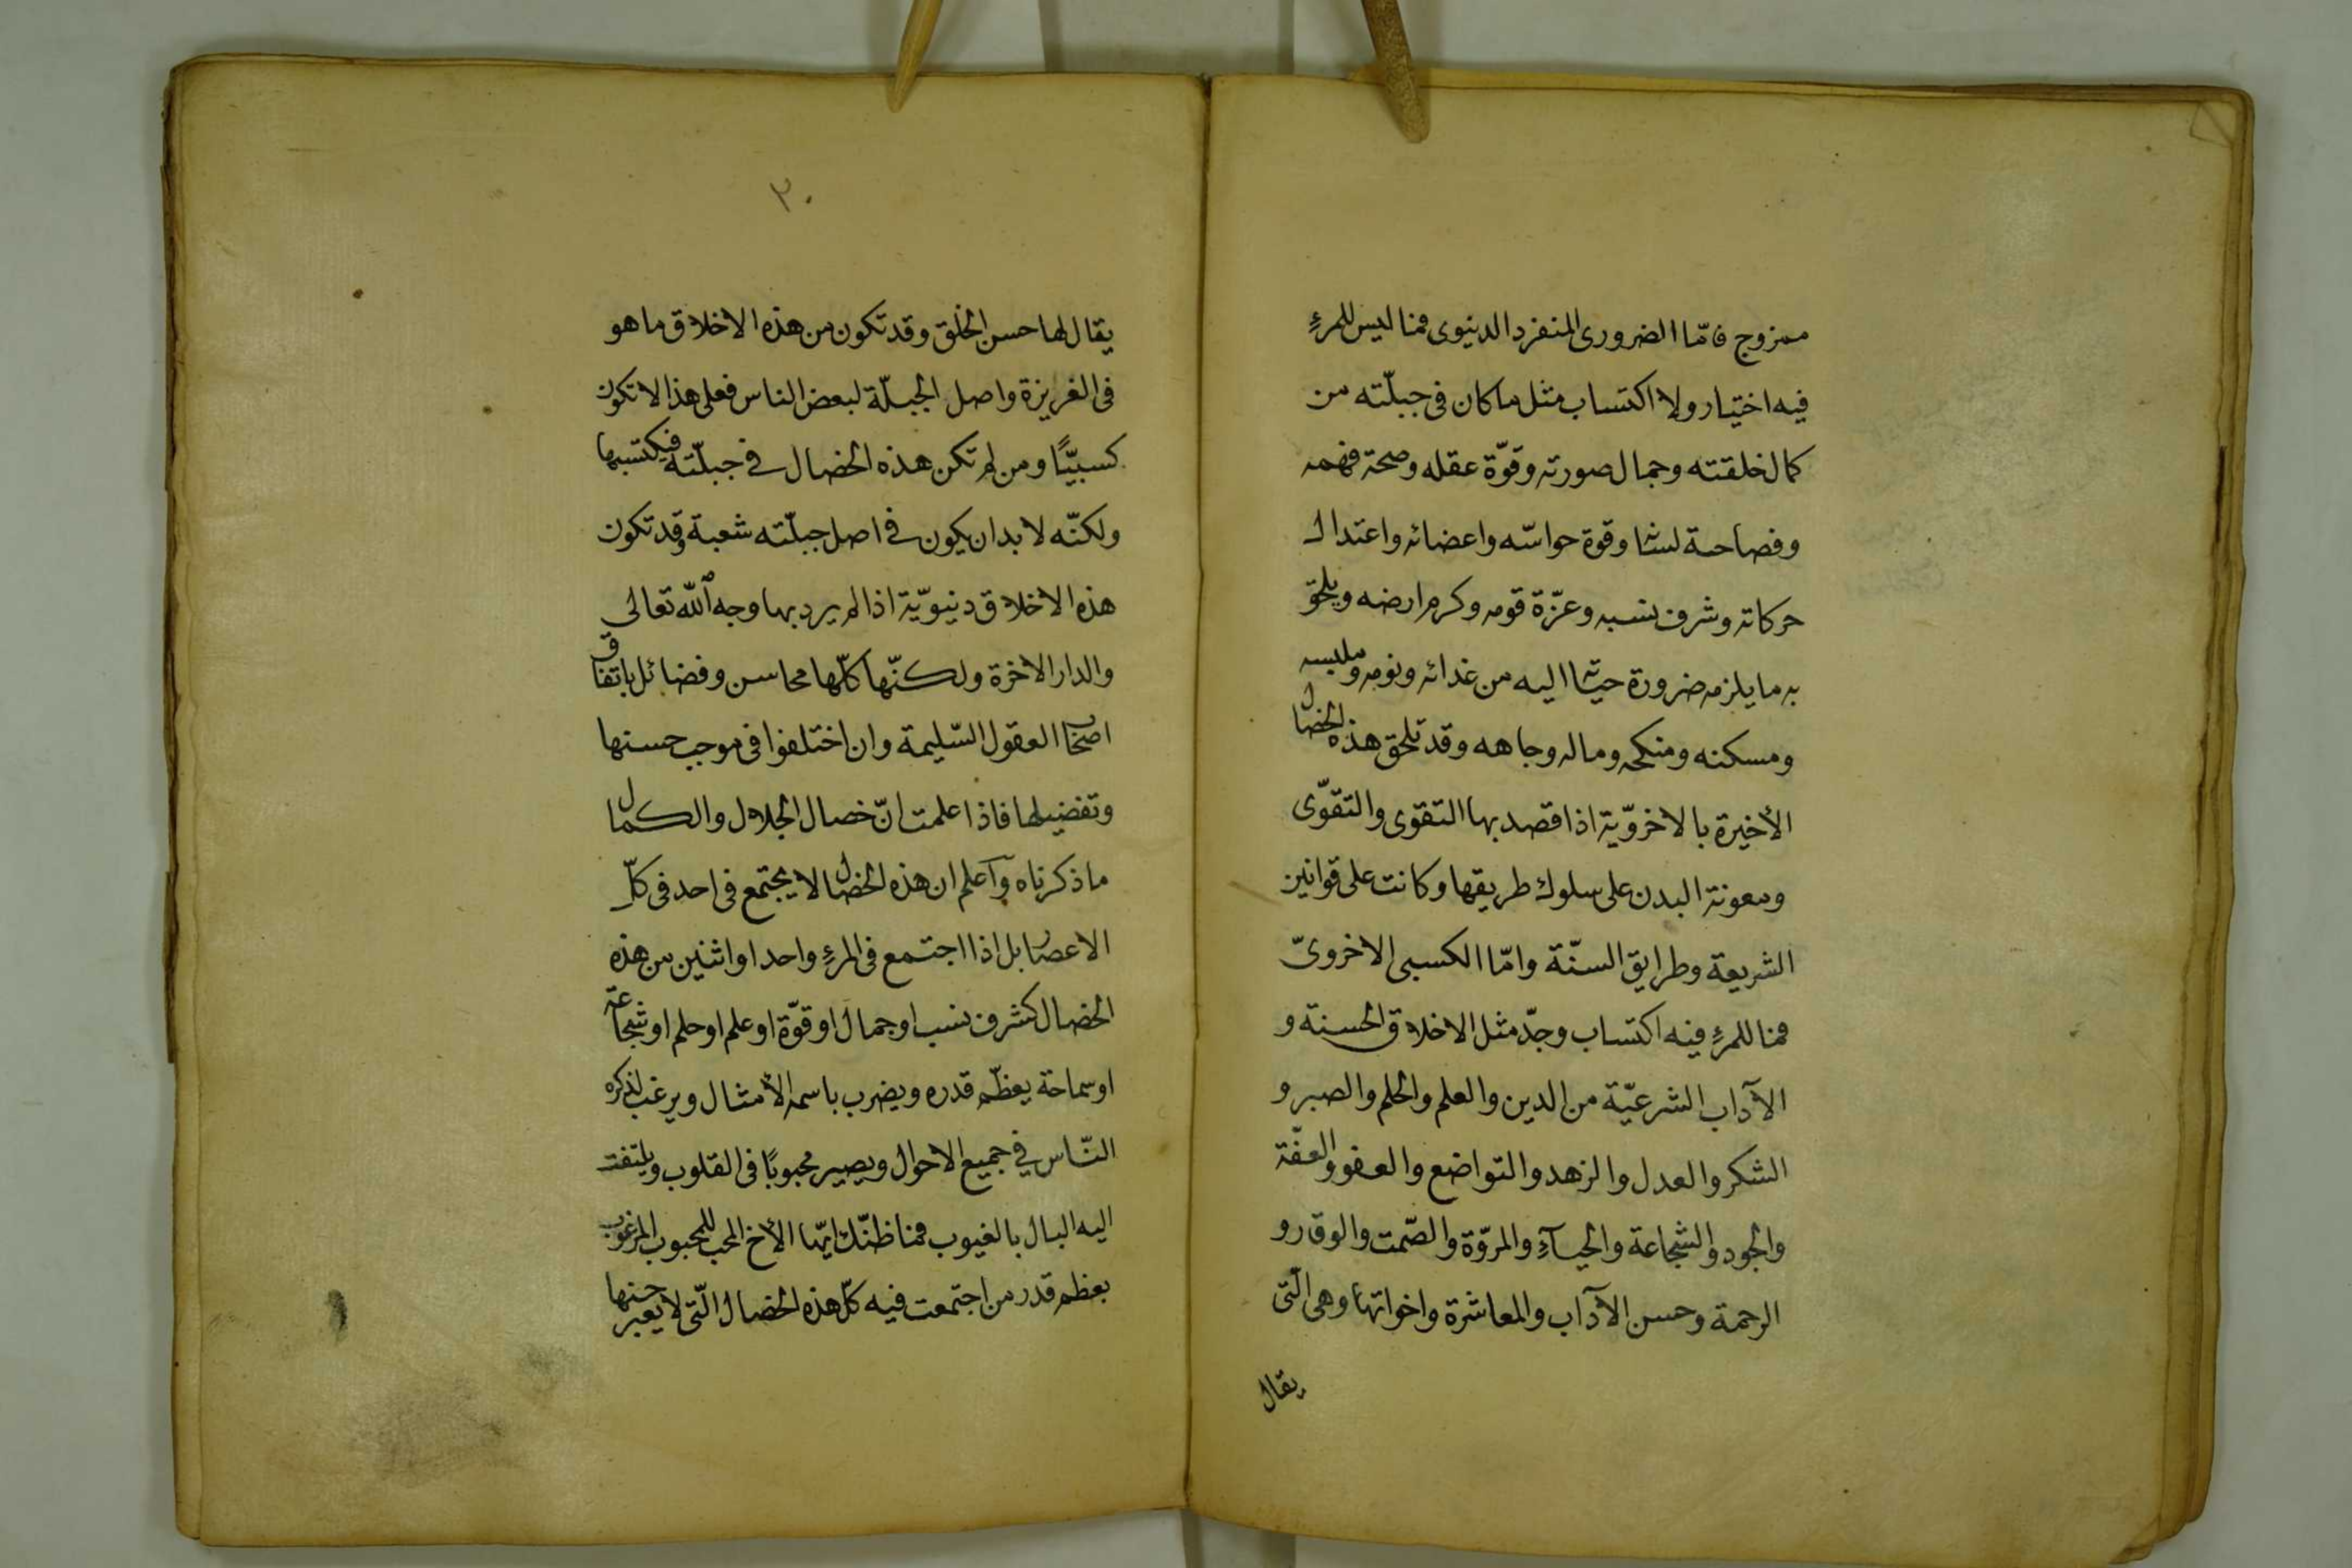 ممزوج فامّا الضرورى المنفرد الدنيوى فما ليس للمرءِ
فيه اختيار ولا اكتساب مثل ما كان فى جبلّته من
كمال خلقته وجمال صورته وقوّة عقله وصحة فهمه
وفصاحة لسانه وقوة حواسّه واعضائه واعتدال
حركاته وشرف نسبه وعزّة قومه وكرم ارضه ويلحق
به ما يلزمه ضرورة حياته اليه من غدائه ونومه وملبسه
ومسكنه ومنكحه وماله وجاهه وقد تلحق هذه الخصال
الأخيرة بالاخرويّة اذا قصد بها التقوى والتقوّى
ومعونة البدن على سلوك طريقها وكانت على قوانين
الشريعة وطرايق السنّة وامّا الكسبى الاخروىّ
فما للمرءِ فيه اكتساب وجدّ مثل الاخلاق الحسنة و
الآداب الشرعيّة من الدين والعلم والحلم والصبر و
الشكر والعدل والزهد والتواضع والعفو والعفّة
والجود والشجاعة والحيآءِ والمروّة والصّمت والوقار و
الرحمة وحسن الآداب والمعاشرة واخواتها وهى الّتى
يقال
٣٠
يقال لها حسن الخلق وقد تكون من هذه الاخلاق ما هو
فى الغريزة واصل الجبلّة لبعض الناس فعلى هذا لا تكون
كسبيًّا ومن لم تكن هذه الخصال فى جبلّته فيكتسبها
ولكنّه لا بد ان يكون فى اصل جبلّته شعبة وقد تكون
هذه الاخلاق دنيويّة اذا لم يرد بها وجه اللّه تعالى
والدار الاخرة ولكنّها كلّها محاسن وفضائل باتفاق
اصحاب العقول السّليمة وان اختلفوا فى موجب حسنها
وتفضيلها فاذا علمت انّ خصال الجلال والكمال
ما ذكرناه وآعلم ان هذه الخصال لا يجتمع فى احد فى كلّ
الاعصار بل اذا اجتمع فى المرءِ واحد او اثنين من هذه
الخصال كشرف نسب او جمال او قوّة او علم او حلم او شجاعة
او سماحة يعظّم قدره ويضرب باسمه الأمثال ويرغب لذكره
النّاس فى جميع الاحوال ويصير محبوبًا فى القلوب ويلتفت
اليه البال بالغيوب فما ظنّك ايّها الأخ المحب للمحبوب المرغوب
بعظم قدر من اجتمعت فيه كلّ هذه الخصال الّتى لا يعبر